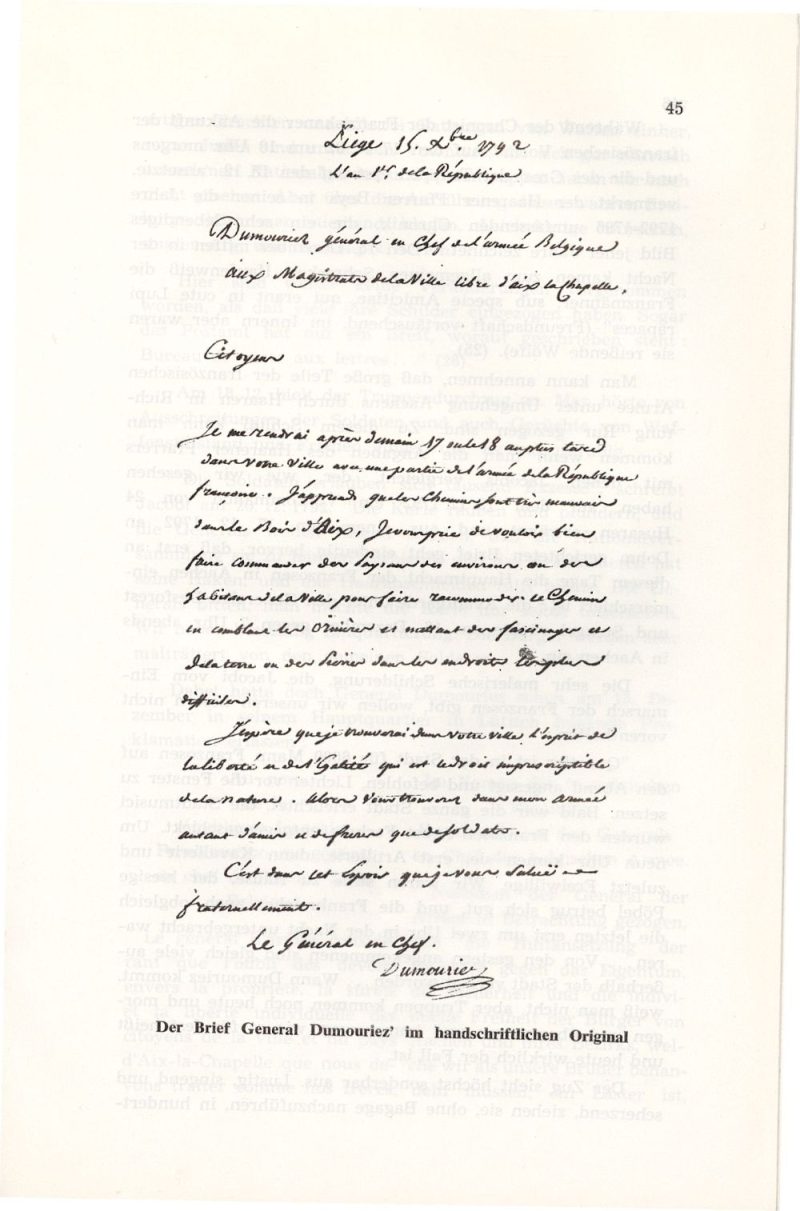 45
Liège 15. Xbre. 1792
L'an 1er. de la République
Dumouriez général en Chef de l'armée Belgique
aux Magistrats de la Ville libre d'aix la Chapelle.
Citoyens
Je me rendrai après demain 17 ou le 18 au plus tard
dans votre Ville avec une partie de l'armée de la République
françoise. J'apprends que les Chemins sont très mauvais
dans le Bois d'Aix, Je vous prie de vouloir bien
faire commander des Paysans des environs ou des
habitans de la Ville pour faire racommoder le Chemin
en comblant les Ornières et mettant des fascinages et
de la terre ou des pierres dans les endroits les plus
difficiles.
J'espère que je trouverai dans votre Ville l'esprit de
la liberté et de l'Egalité qui est le droit imprescriptible
de la nature. Alors Vous trouverez dans mon armée
autant d'amis et de freres que de soldats.
C'est dans cet Espoir que je vous salue
fraternellement.
Le Général en Chef.
Dumouriez
Der Brief General Dumouriez' im handschriftlichen Original